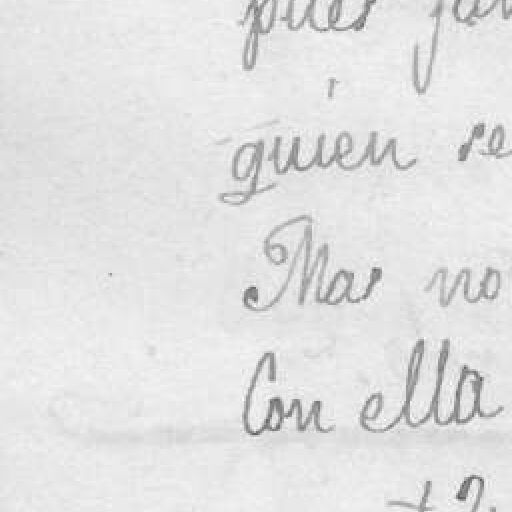 pues
quien se
Mas no
Con ella